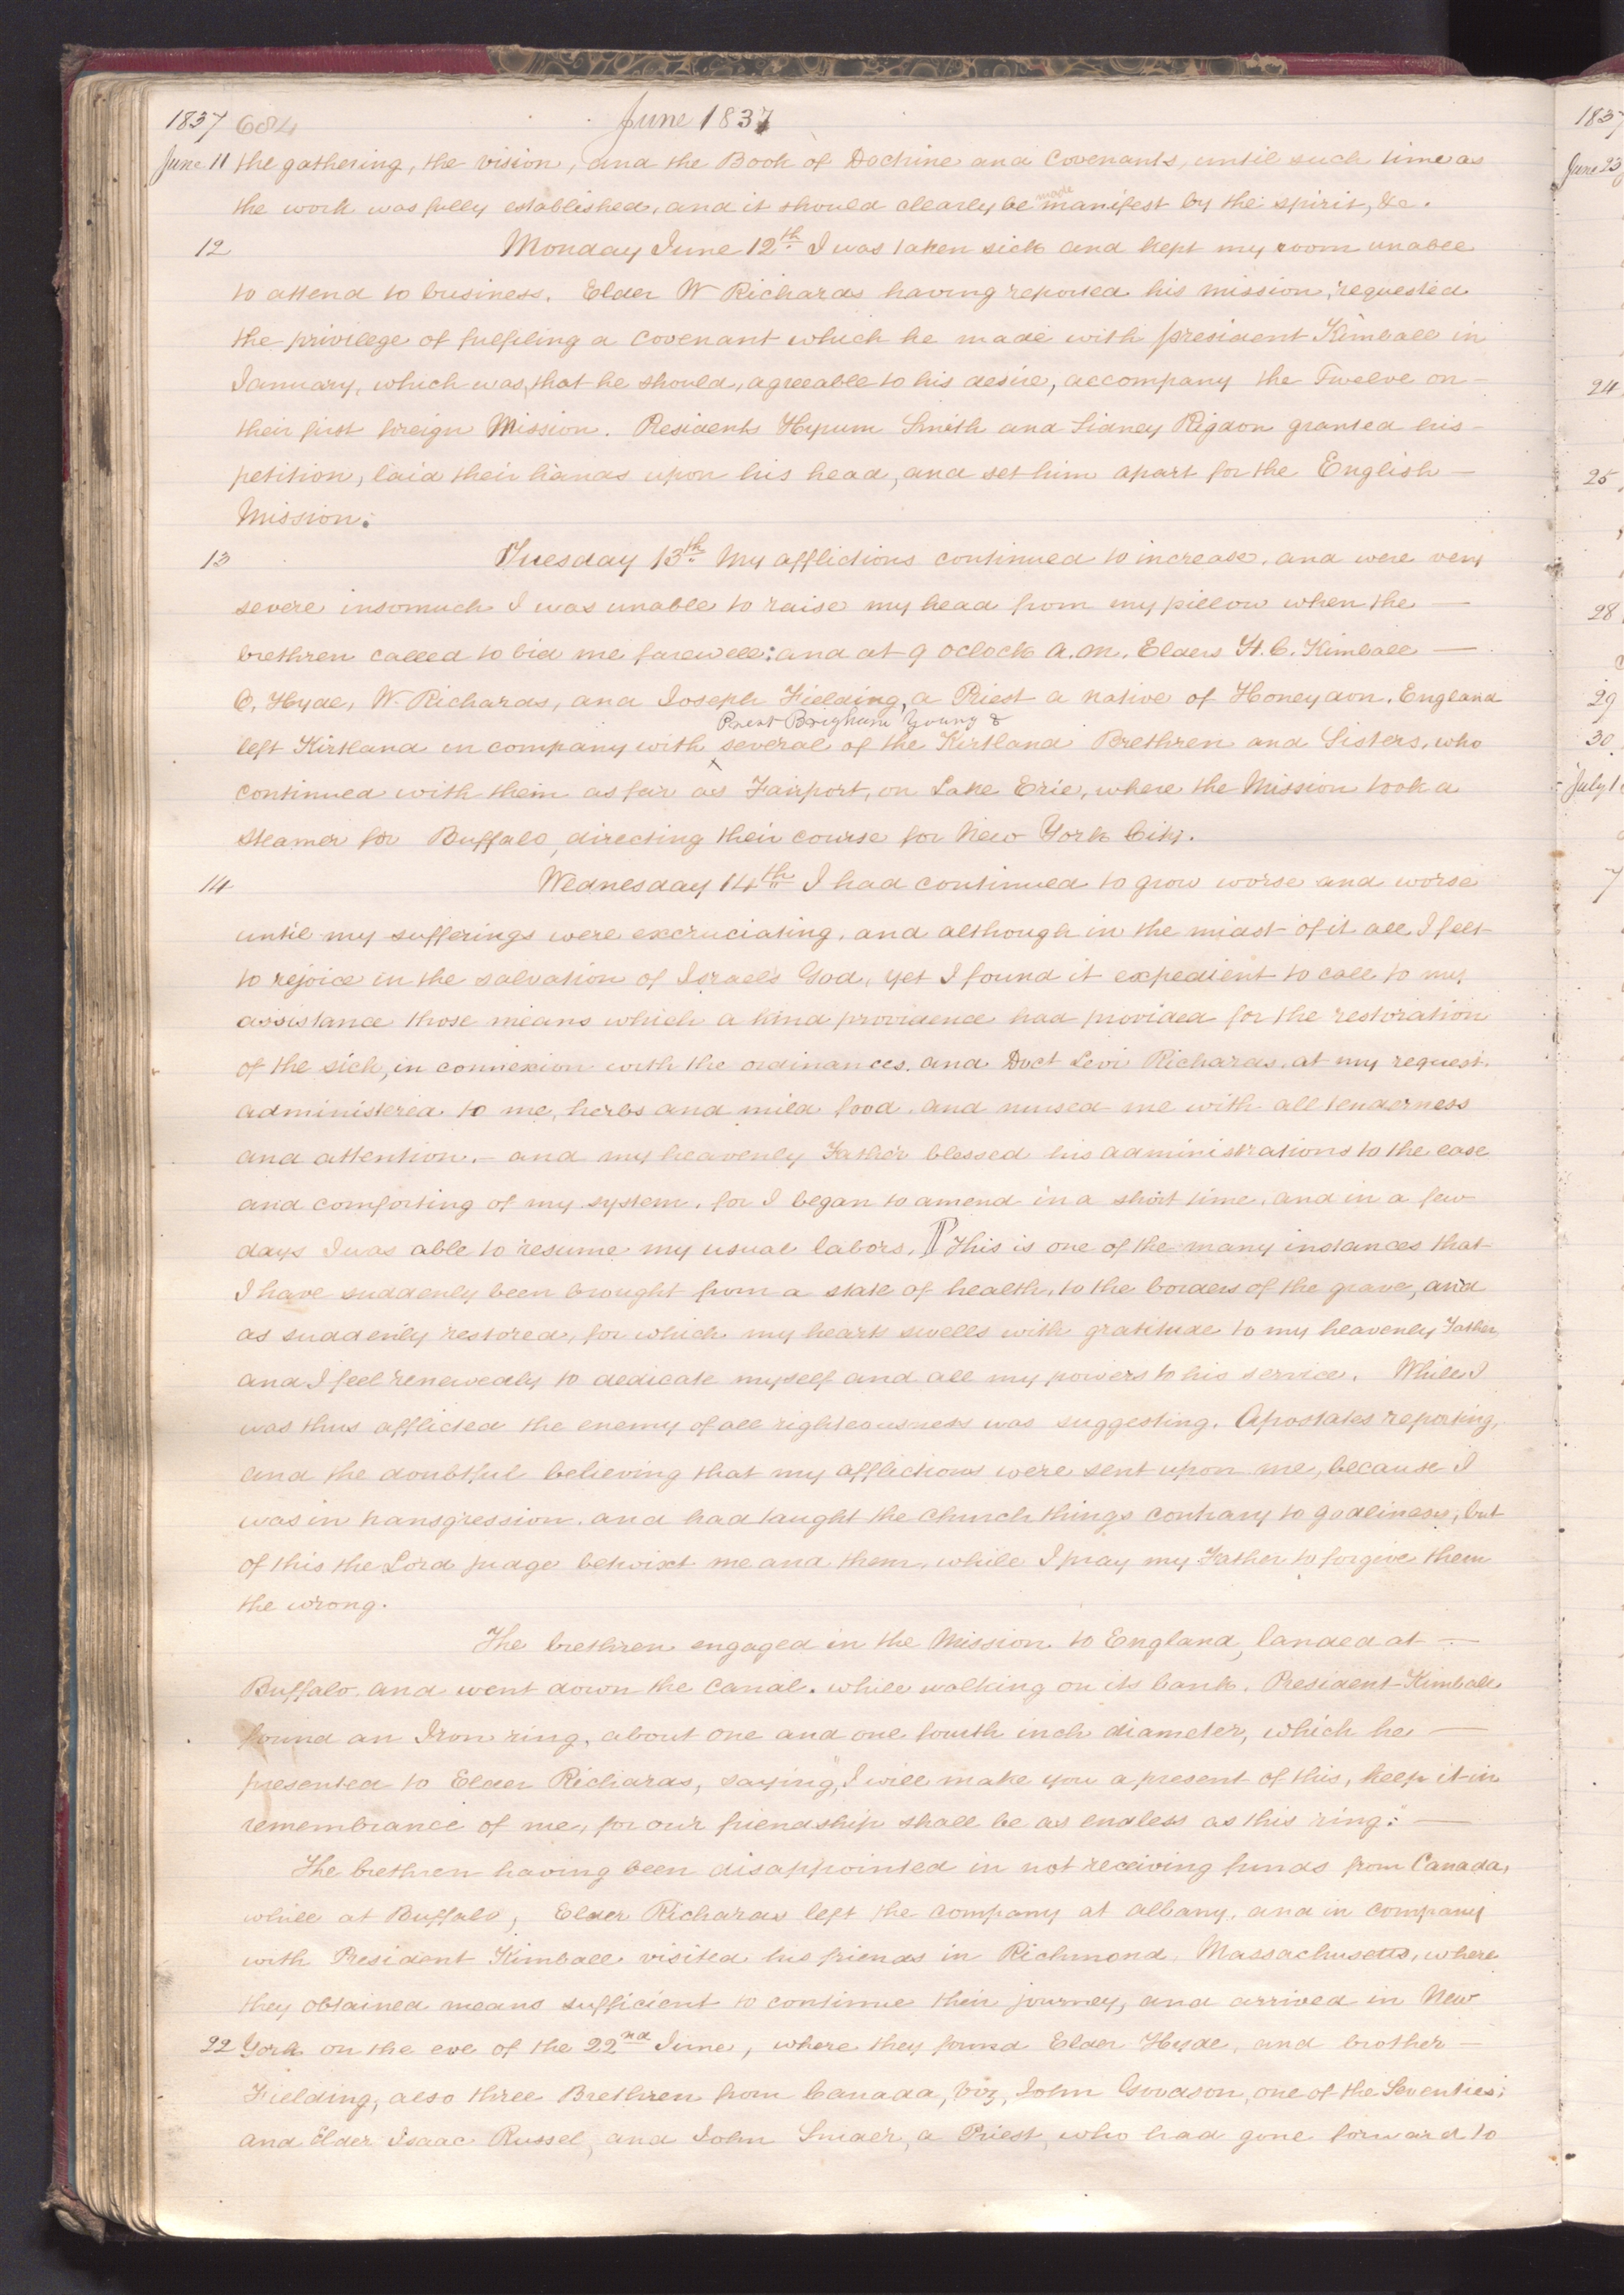 1837 684 June 1837
June 11 the gathering, the vision, and the Book of Doctrine and Covenants, until such time as
the work was fully established, and it should clearly be made manifest by the spirit, &c.
12 Monday June 12th I was taken sick and kept my room unable
to attend to business. Elder W Richards having reported his mission, requested
the privilege of fulfiling a covenant which he made with president Kimball in
January, which was, that he should, agreeable to his desire, accompany the Twelve on
their first foreign Mission. Presidents Hyrum Smith and Sidney Rigdon granted his
petition, laid their hands upon his head, and set him apart for the English
Mission.
13 Tuesday 13th My afflictions continued to increase, and were very
severe insomuch I was unable to raise my head from my pillow when the
brethren called to bid me farewell; and at 9 oclock A.M. Elders H. C. Kimball
O. Hyde, W. Richards, and Joseph Fielding, a Priest a native of Honeydon, England
Prest Brigham Young &
left Kirtland in company with several of the Kirtland Brethren and Sisters, who
continued with them as far as Fairport, on Lake Erie, where the Mission took a
steamer for Buffalo, directing their course for New York City.
14 Wednesday 14th I had continued to grow worse and worse
until my sufferings were excruciating, and although in the midst of it all I felt
to rejoice in the salvation of Israels God, yet I found it expedient to call to my
assistance those means which a kind providence had provided for the restoration
of the sick, in connexion with the ordinances, and Doct Levi Richards, at my request,
administered to me, herbs and mild food, and nursed me with all tenderness
and attention. - and my heavenly Father blessed his administrations to the ease
and comforting of my system, for I began to amend in a short time, and in a few
days I was able to resume my usual labors. ¶ This is one of the many instances that
I have suddenly been brought from a state of health, to the borders of the grave, and
as suddenly restored, for which my heart swells with gratitude to my heavenly Father
and I feel renewedly to dedicate myself and all my powers to his service. While I
was thus afflicted the enemy of all righteousness was suggesting, Apostates reporting,
and the doubtful believing that my afflictions were sent upon me, because I
was in transgression, and had taught the church things contrary to godliness; but
of this the Lord judge betwixt me and them, while I pray my Father to forgive them
the wrong.
The brethren engaged in the Mission to England, landed at
Buffalo, and went down the canal. while walking on its bank, President Kimball
found an Iron ring, about one and one fourth inch diameter, which he
presented to Elder Richards, saying, "I will make you a present of this, keep it in
remembrance of me, for our friendship shall be as endless as this ring."
The brethren having been disappointed in not receiving funds from Canada,
while at Buffalo, Elder Richards left the company at albany, and in company
with President Kimball visited his friends in Richmond, Massachusetts, where
they obtained means sufficient to continue their journey, and arrived in New
22 York on the eve of the 22nd June, where they found Elder Hyde, and brother
Fielding, also three Brethren from Canada, viz, John Goodson, one of the Seventies;
and Elder Isaac Russel, and John Snider, a Priest, who had gone forward to
1837
June 23
24
25
28
29
30
July 1
7